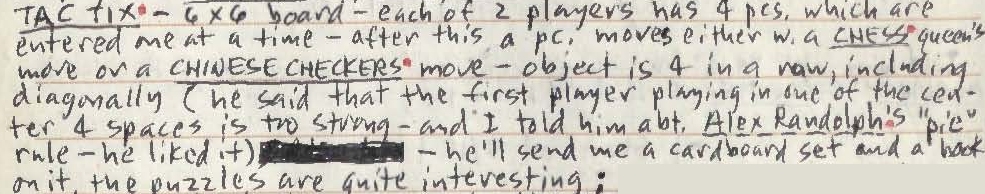 TAC TIX • - 6 x 6 board - each of 2 players has 4 pcs. which are
entered one at a time - after this a pc. moves either w. a CHESS • queen's
move or a CHINESE CHECKERS • move - object is 4 in a row, including
diagonally (he said that the first player playing in one of the cen-
ter 4 spaces is too strong - and I told him abt. Alex Randolph's "pie"
rule - he liked it) - he'll send me a cardboard set and a book
on it, the puzzles are quite interesting: